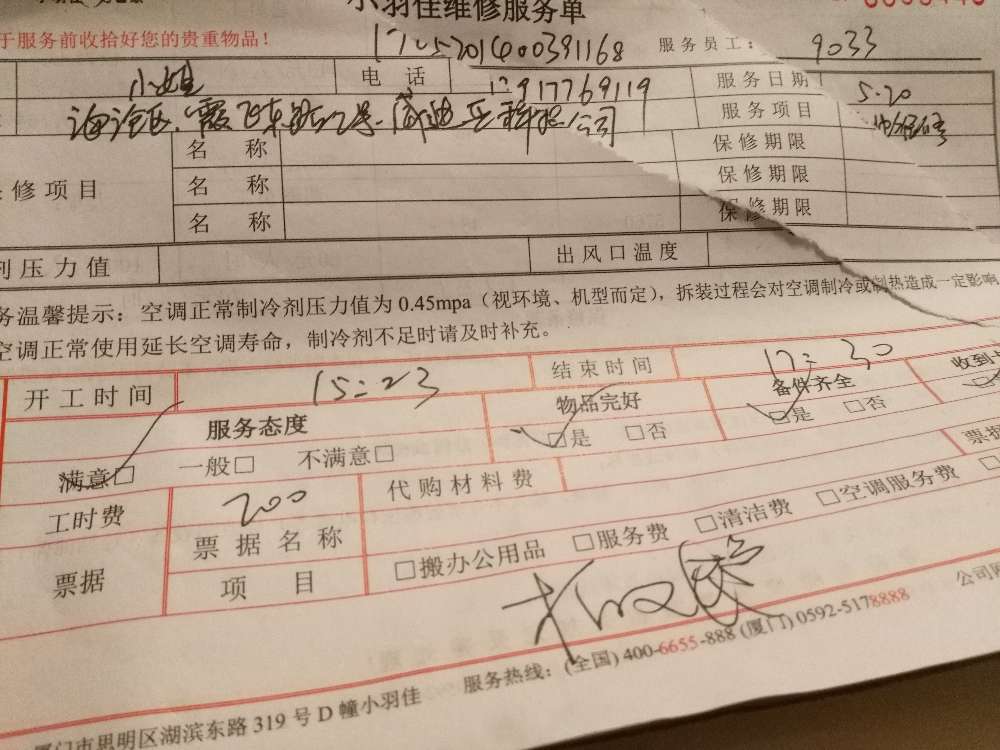 小羽佳维修服务单
于服务前收拾好您的贵重物品！
服务员工： 9033
小姐 电 话 服务日期 5.20
服务项目
名 称 保修期限
修项目 名 称 保修期限
名 称 保修期限
剂压力值 出风口温度
务温馨提示：空调正常制冷剂压力值为 0.45mpa（视环境、机型而定），拆装过程会对空调制冷或制热造成一定影响
空调正常使用延长空调寿命，制冷剂不足时请及时补充。
开工时间 15:23 结束时间 17:30
服务态度 物品完好 备件齐全 收到
满意□ 一般□ 不满意□ □是 □否 □是 □否
工时费 200 代购材料费 票据
票据 票据名称 □搬办公用品 □服务费 □清洁费 □空调服务费
项 目
服务热线：(全国) 400-6655-888 (厦门) 0592-5178888 公司网
厦门市思明区湖滨东路 319 号 D 幢小羽佳